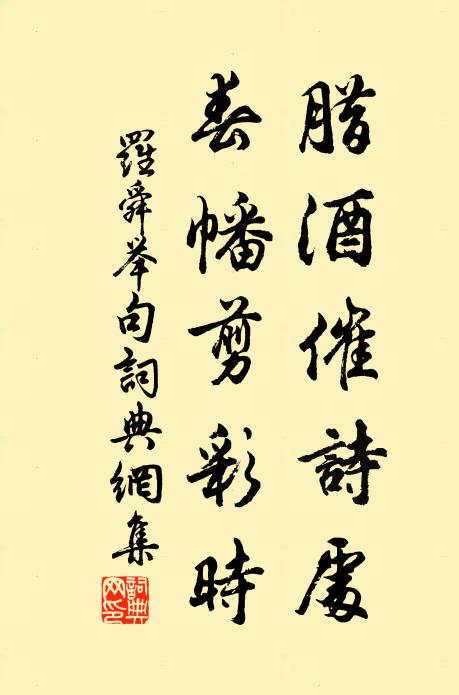 腊酒催詩處
春幡剪彩時
羅舜举句詞典網集
詞典网印